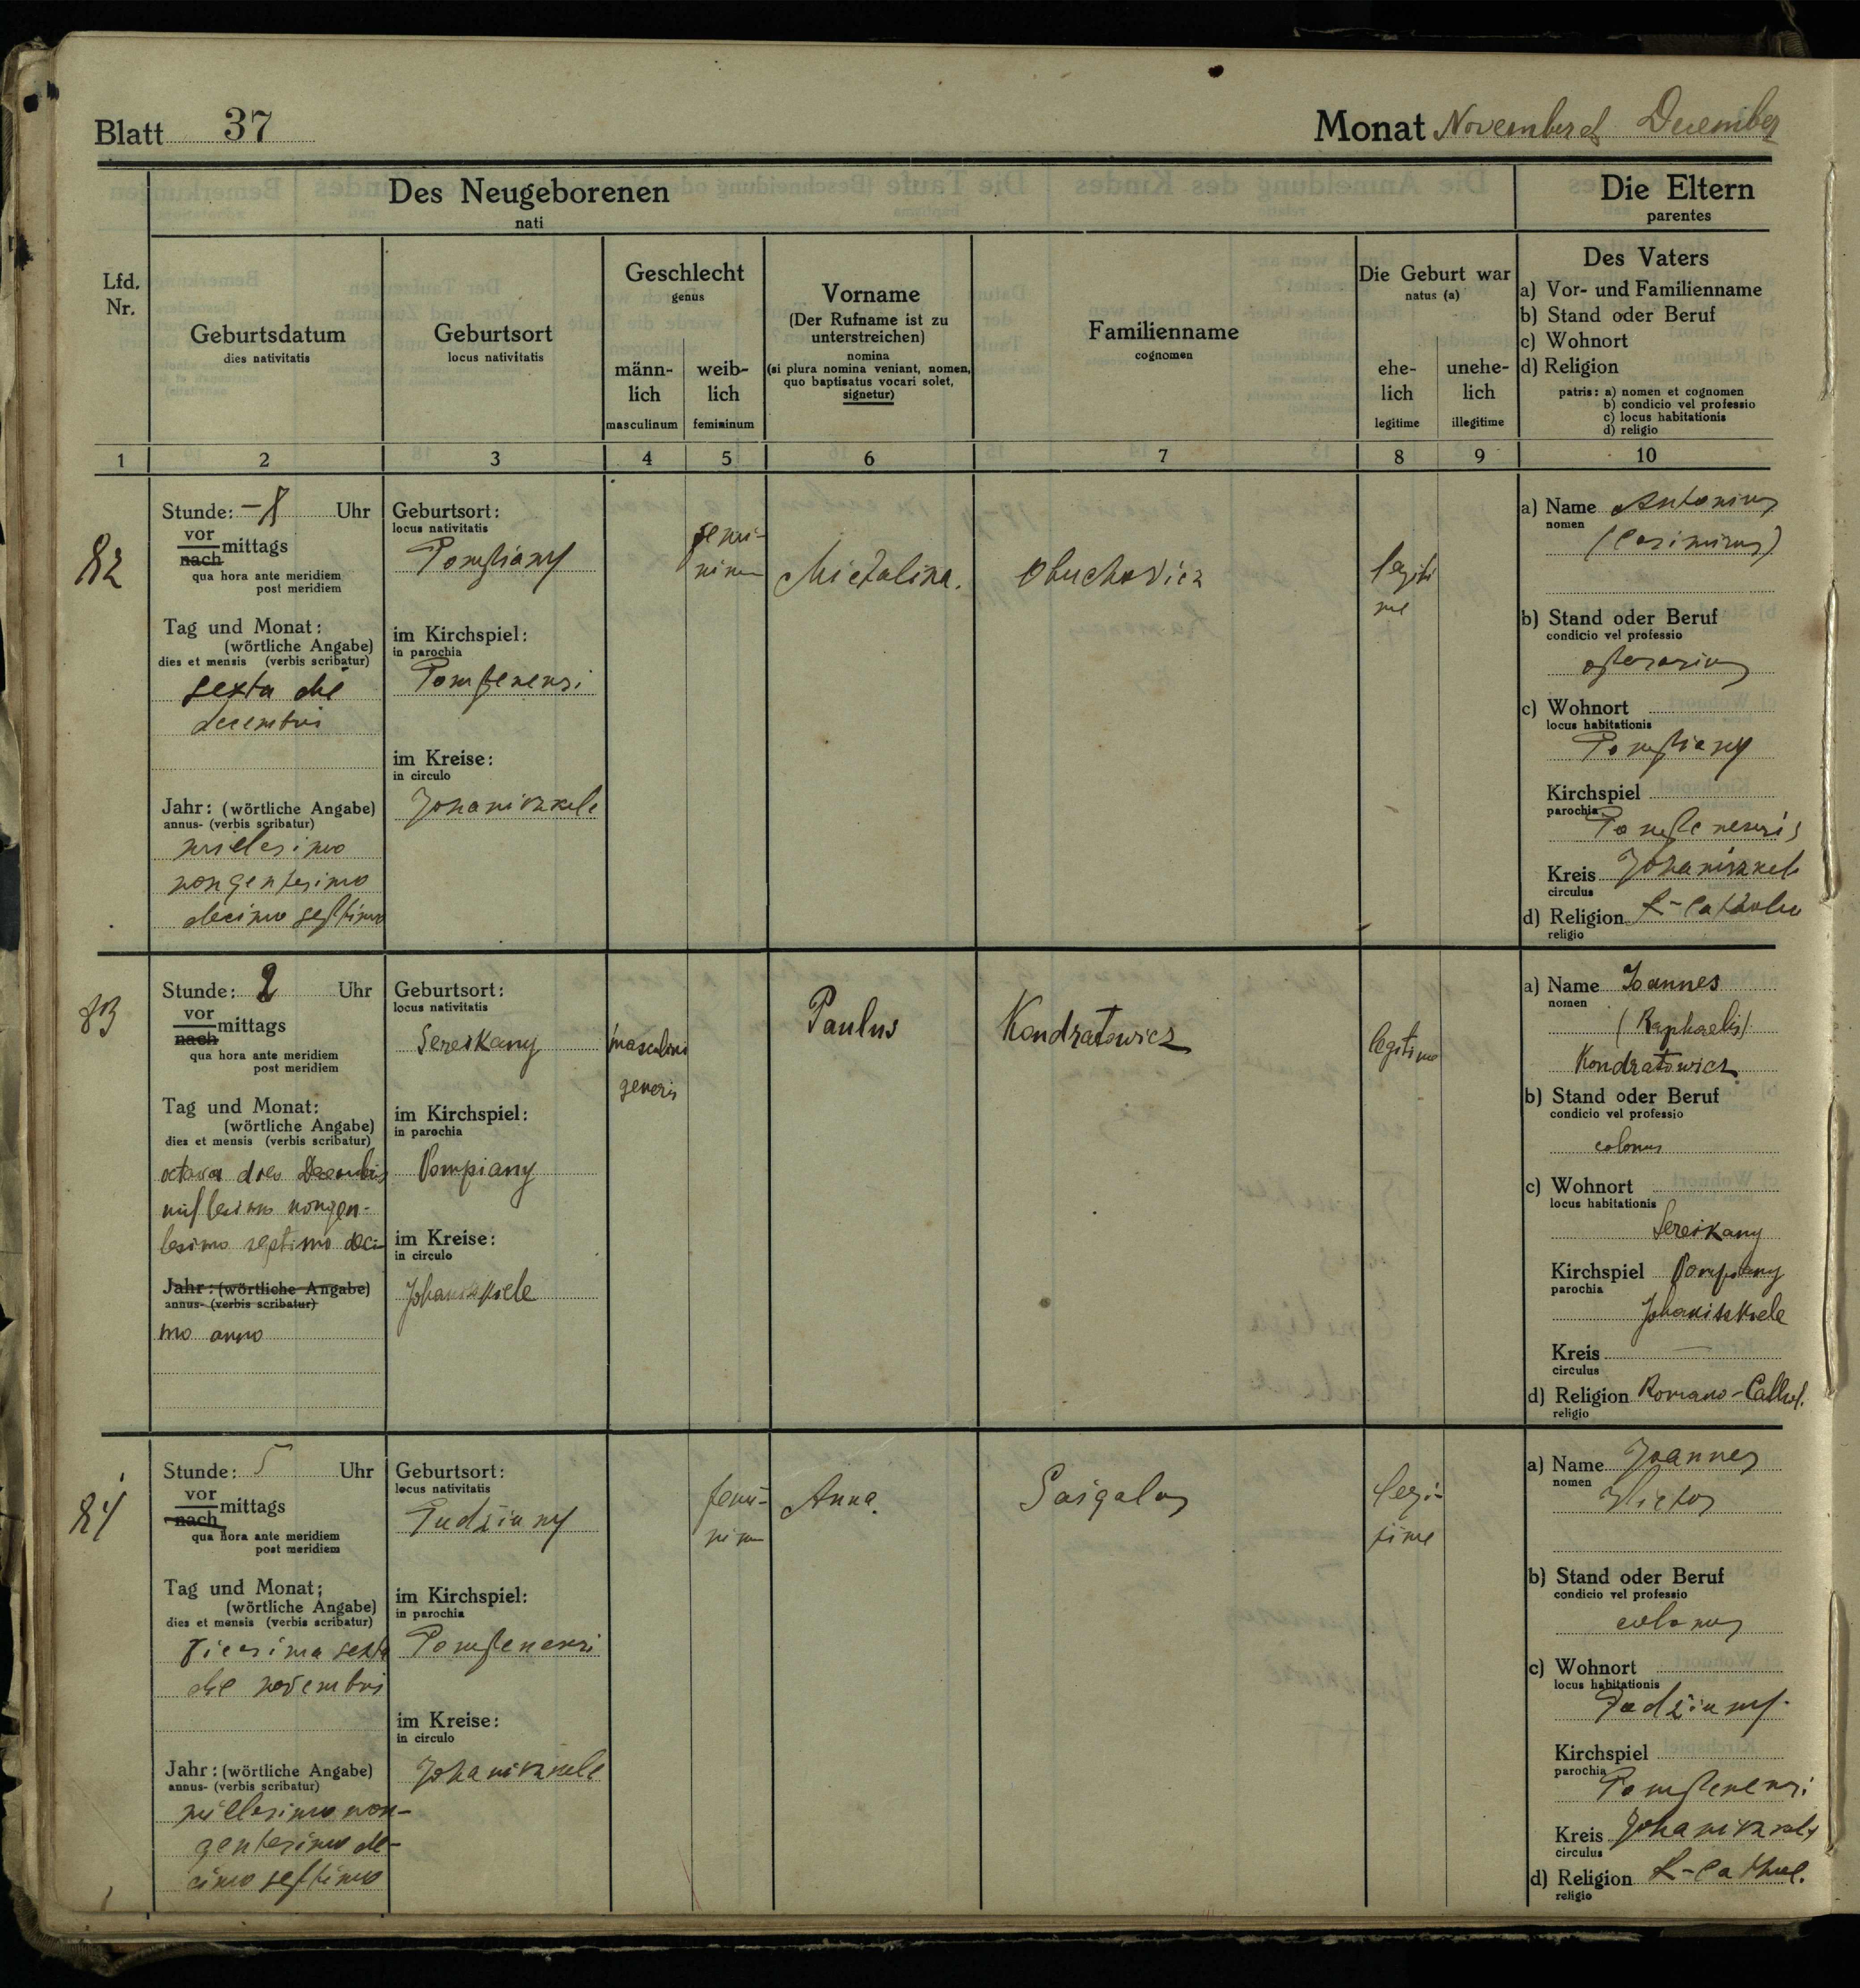 Blatt 37
Monat November et December
Des Neugeborenen
nati
Die Eltern
parentes
Lfd. Nr.
Geburtsdatum
dies nativitatis
Geburtsort
locus nativitatis
Geschlecht
genus
männ-
lich
masculinum
weib-
lich
femininum
Vorname
(Der Rufname ist zu
unterstreichen)
nomina
(si plura nomina veniant, nomen,
quo baptisatus vocari solet,
signetur)
Familienname
cognomen
Die Geburt war
natus (a)
ehe-
lich
legitime
unehe-
lich
illegitime
Des Vaters
a) Vor- und Familienname
b) Stand oder Beruf
c) Wohnort
d) Religion
patris: a) nomen et cognomen
b) condicio vel professio
c) locus habitationis
d) religio
1 2 3 4 5 6 7 8 9 10
82
Stunde: Uhr
vor
nach
mittags
qua hora ante meridiem
post meridiem
Tag und Monat:
(wörtliche Angabe)
dies et mensis (verbis scribatur)
sexta die
decembris
Jahr: (wörtliche Angabe)
annus- (verbis scribatur)
millesimo
nongentesimo
decimo septimo
Geburtsort:
locus nativitatis
Pompiany
im Kirchspiel:
in parochia
Pompenensi
im Kreise:
in circulo
Johaniszkele
femi-
ninum
Michalina.
Obuchovicz
legiti
me
a) Name Antonius
nomen
(Casimirus)
b) Stand oder Beruf
condicio vel professio
c) Wohnort
locus habitationis
Pompiany
Kirchspiel
parochia
Pompenensis
Kreis Johaniszkele
circulus
d) Religion R-Catholic
religio
83
Stunde: 2 Uhr
vor
nach
mittags
qua hora ante meridiem
post meridiem
Tag und Monat:
(wörtliche Angabe)
dies et mensis (verbis scribatur)
octava dies Decembris
millesimo nongen-
tesimo septimo deci-
Jahr: (wörtliche Angabe)
annus- (verbis scribatur)
mo anno
Geburtsort:
locus nativitatis
Sereikany
im Kirchspiel:
in parochia
Pompiany
im Kreise:
in circulo
Johaniszkiele
masculini
generis
Paulus
Kondratowicz
legitimo
a) Name Joannes
nomen
(Raphaelis)
Kondratowicz
b) Stand oder Beruf
condicio vel professio
colonus
c) Wohnort
locus habitationis
Sereikany
Kirchspiel Pompiany
parochia
Johaniszkiele
Kreis
circulus
d) Religion Romano-Cathol.
religio
84
Stunde: 5 Uhr
vor
nach
mittags
qua hora ante meridiem
post meridiem
Tag und Monat:
(wörtliche Angabe)
dies et mensis (verbis scribatur)
vicesima sexta
die novembris
Jahr: (wörtliche Angabe)
annus- (verbis scribatur)
millesimo non-
gentesimo de-
cimo septimo
Geburtsort:
locus nativitatis
Pudžiuny
im Kirchspiel:
in parochia
Pompenensi
im Kreise:
in circulo
Johaniszkele
femi-
ninum
Anna.
Saigalas
legi-
time
a) Name Joannes
nomen
Victor
b) Stand oder Beruf
condicio vel professio
colonus
c) Wohnort
locus habitationis
Pudžiuny.
Kirchspiel
parochia
Pompenensi
Kreis Johaniszkele
circulus
d) Religion R-Cathol.
religio